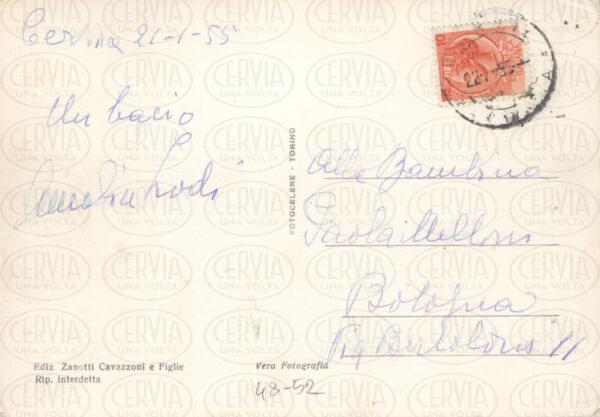 Cervia 21-1-55
Un bacio
Alla Bambina
Paola Melloni
Bologna
Via Bertoloni 11
FOTOCELERE - TORINO
Ediz. Zanotti Cavazzoni e Figlie
Rip. interdetta
Vera Fotografia
48-52
CERVIA
UNA VOLTA